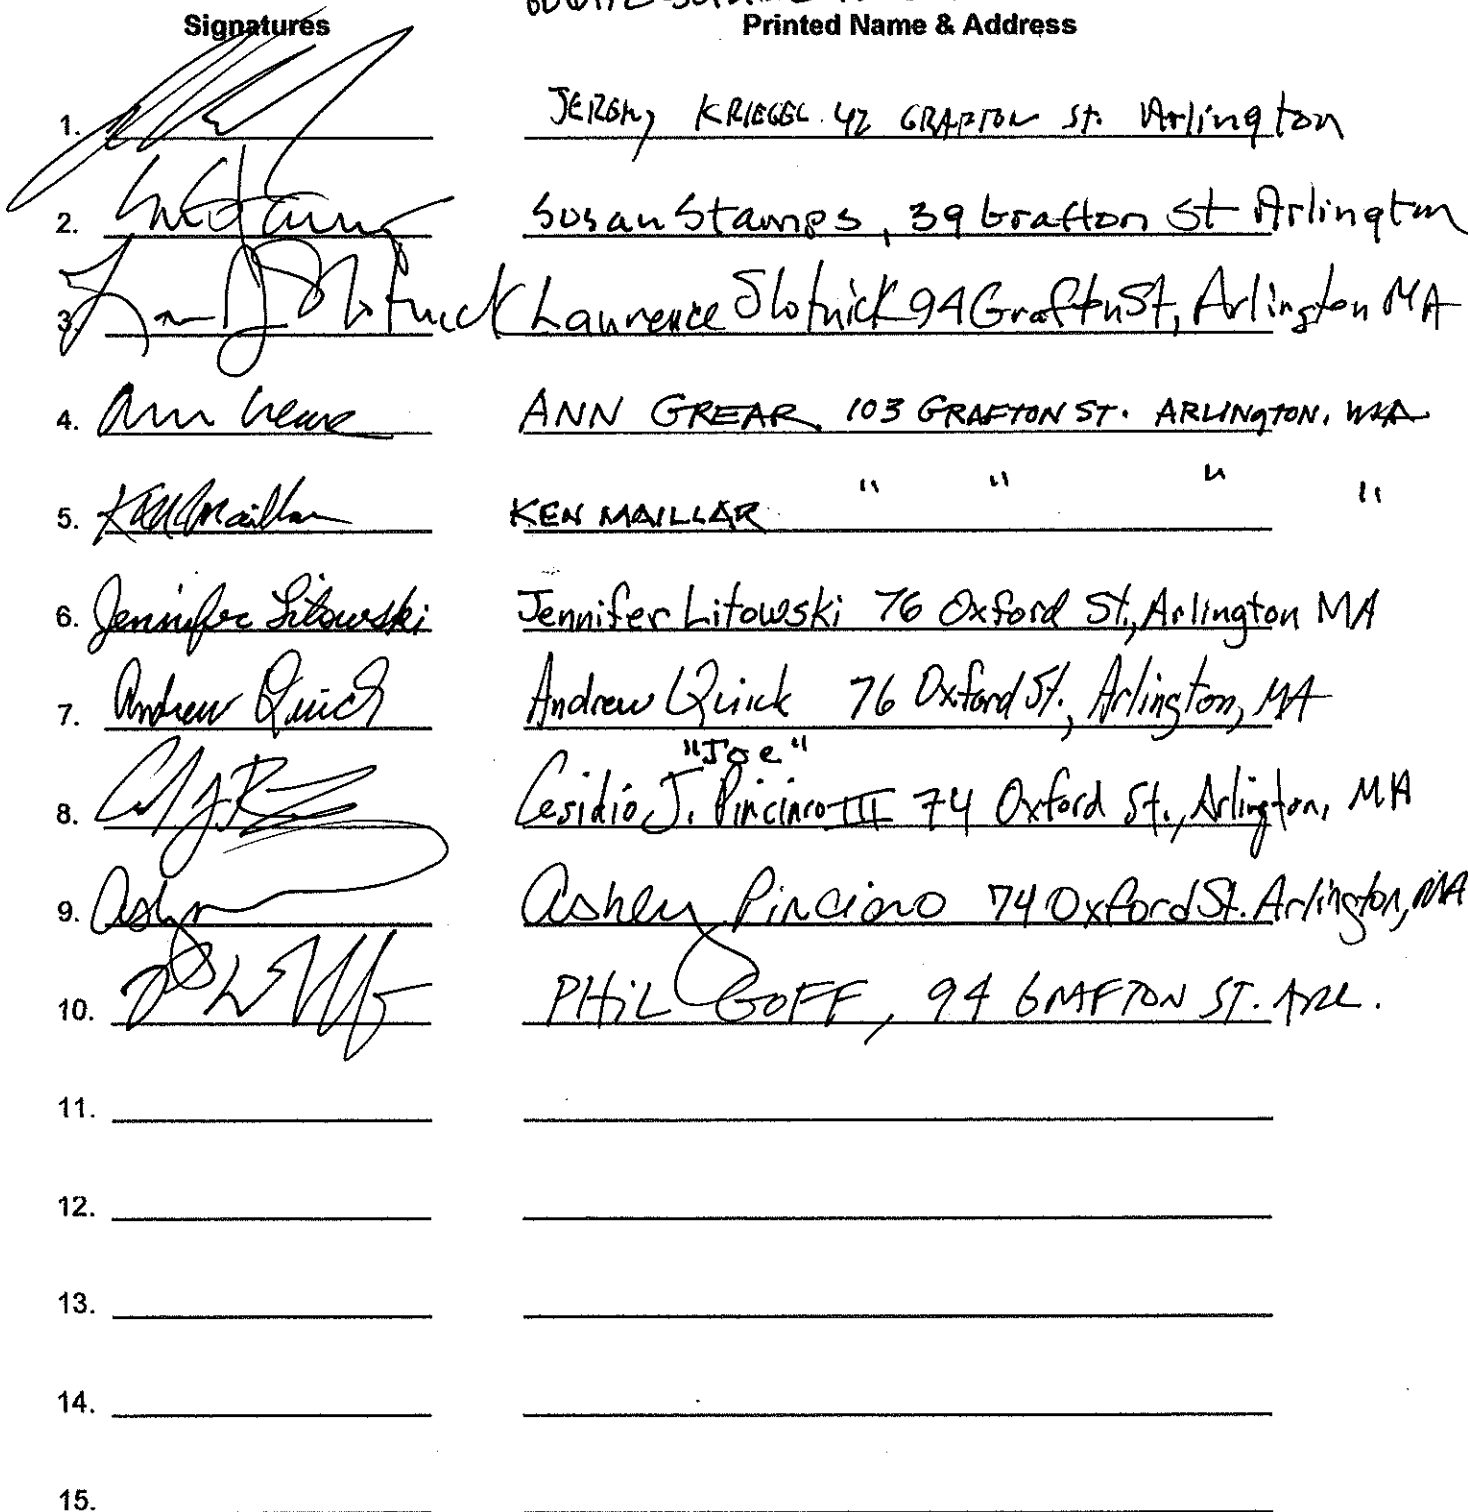 Signatures Printed Name & Address
1. JEREMY KRIEGEL 42 GRAFTON St. Arlington
2. Susan Stamps, 39 Grafton St Arlington
3. Laurence Slotnick 94 Grafton St, Arlington MA
4. Ann Grear ANN GREAR 103 GRAFTON ST. ARLINGTON, MA
5. Ken Maillar KEN MAILLAR " " " "
6. Jennifer Litowski Jennifer Litowski 76 Oxford St., Arlington MA
7. Andrew Quick Andrew Quick 76 Oxford St., Arlington, MA
"Joe"
8. Cesidio J. Pinciaro III 74 Oxford St., Arlington, MA
9. Ashley Pinciaro 74 Oxford St. Arlington, MA
10. PHIL GOFF, 94 GRAFTON ST. ARL.
11.
12.
13.
14.
15.